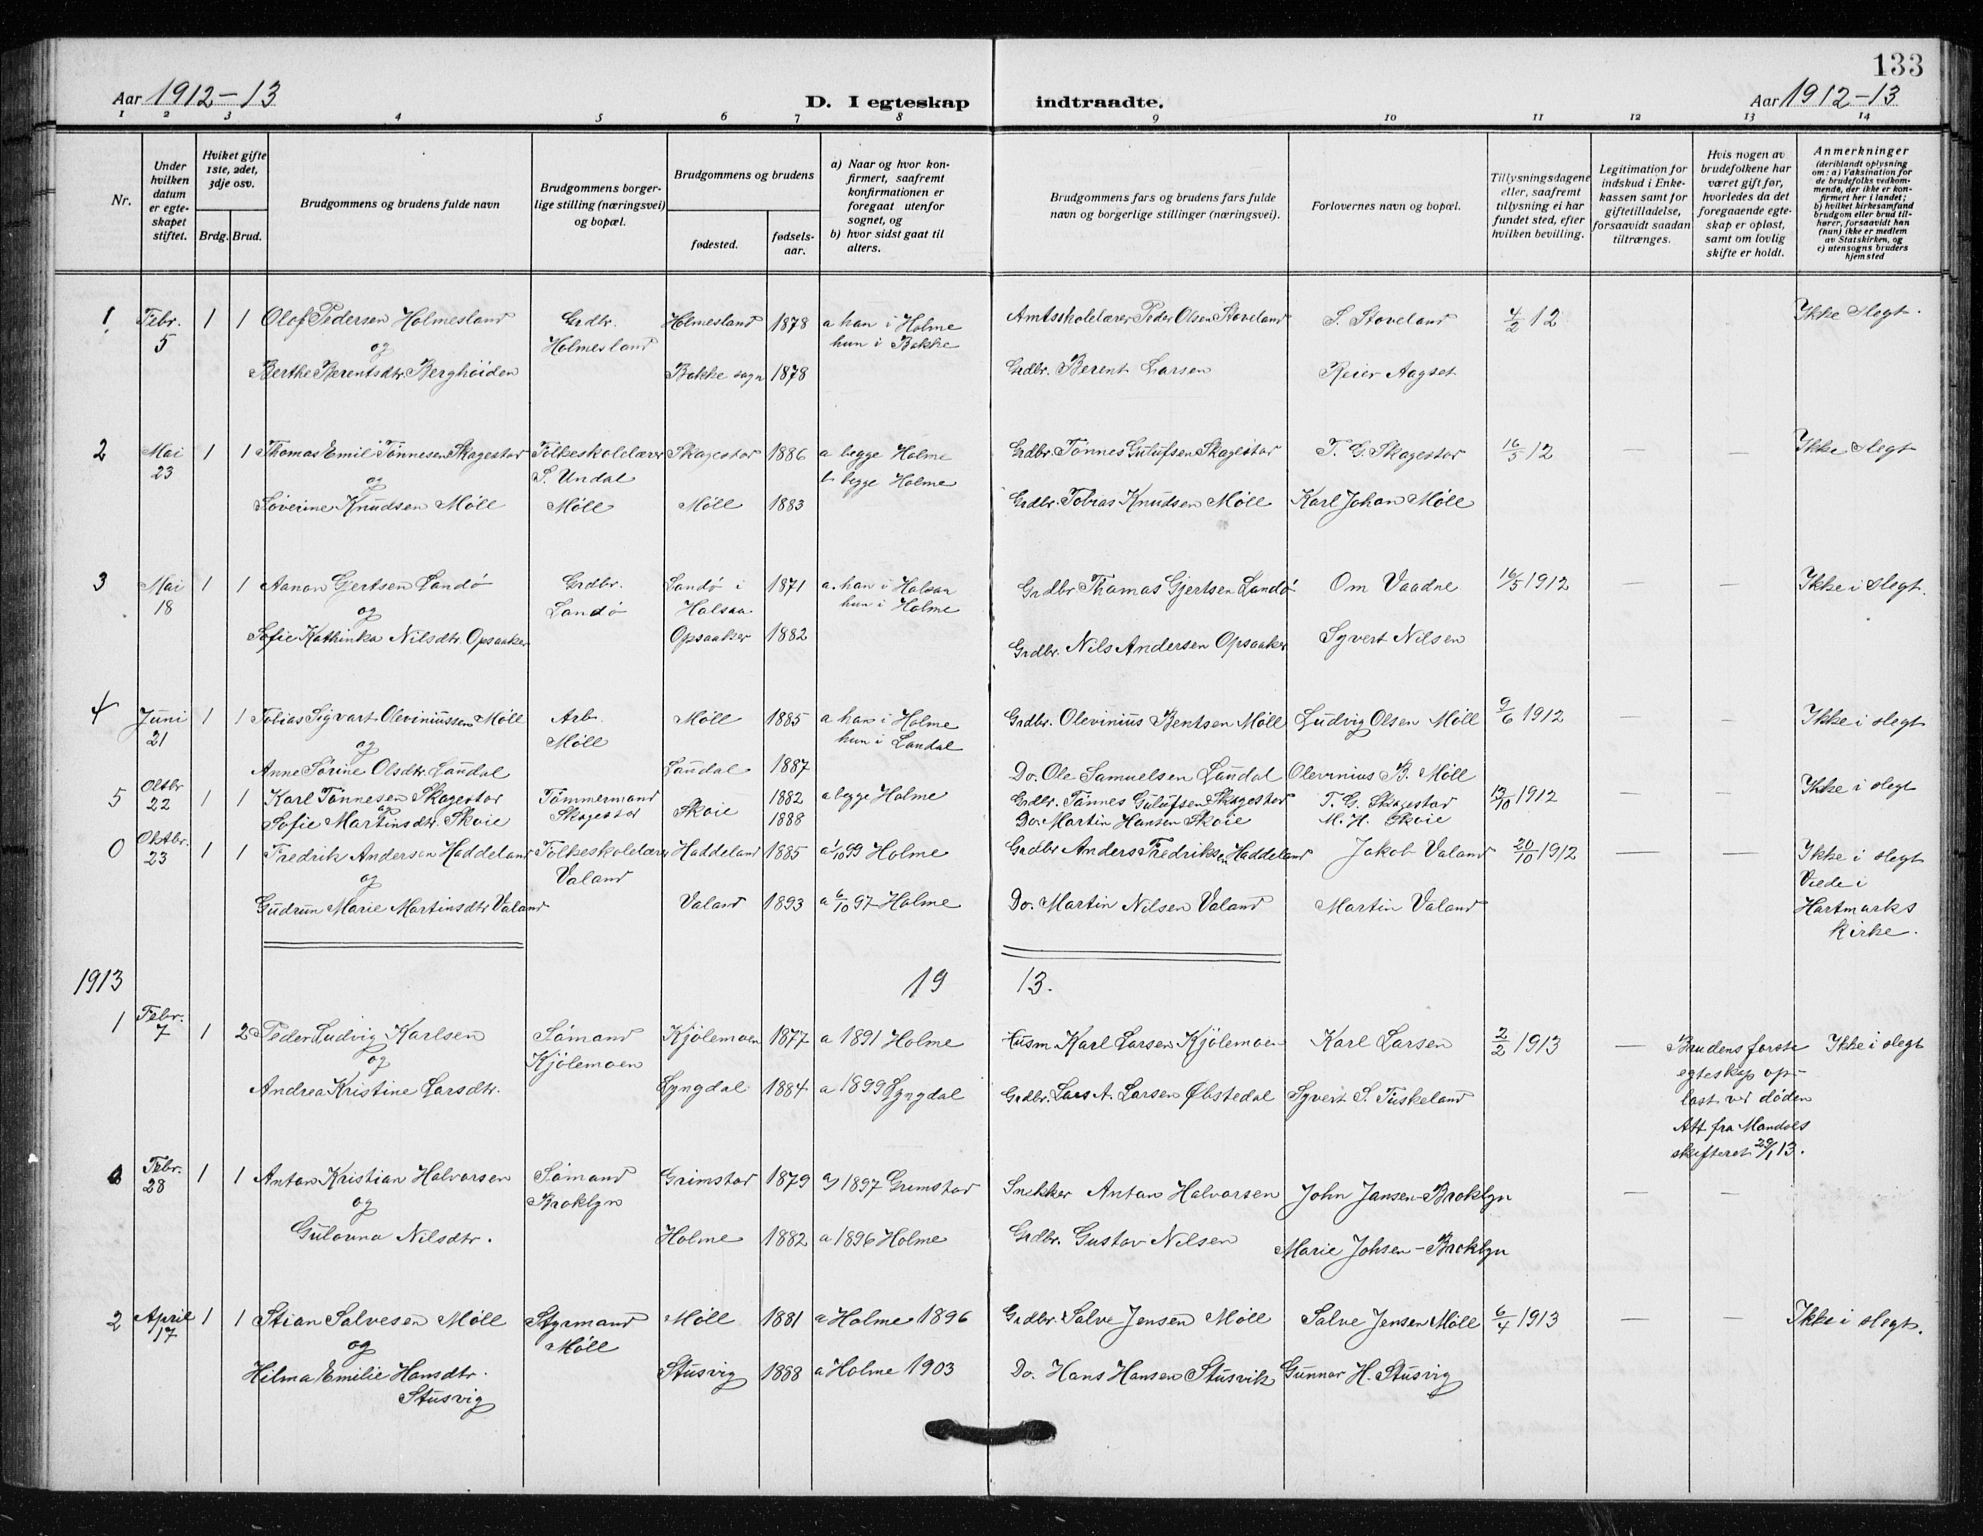 133
Aar 1912-13 D. I egteskap indtraadte. Aar 1912-13
1 2 3 4 5 6 7 8 9 10 11 12 13 14
Nr.
Under hvilken datum er egteskapet stiftet.
Hviket gifte 1ste, 2det, 3dje osv.
Brdg. Brud.
Brudgommens og brudens fulde navn
Brudgommens borgerlige stilling (næringsvei) og bopæl.
Brudgommens og brudens
fødested. fødselsaar.
a) Naar og hvor konfirmert, saafremt konfirmationen er foregaat utenfor sognet, og
b) hvor sidst gaat til alters.
Brudgommens fars og brudens fars fulde navn og borgerlige stillinger (næringsvei).
Forlovernes navn og bopæl.
Tillysningsdagene eller, saafremt tillysning ei har fundet sted, efter hvilken bevilling.
Legitimation for indskud i Enkekassen samt for giftetilladelse, forsaavidt saadan tiltrænges.
Hvis nogen av brudefolkene har været gift før, hvorledes da det foregaaende egteskap er opløst, samt om lovlig skifte er holdt.
Anmerkninger
(deriblandt oplysning om: a) Vaksination for de brudefolks vedkommende, der ikke er konfirmert her i landet;
b) hvilket kirkesamfund brudgom eller brud tilhører, forsaavidt han (hun) ikke er medlem av Statskirken, og
c) utensogns bruders hjemsted
1 Febr. 5 1 1 Olof Pedersen Holmesland Grdbr. Holmesland Holmesland 1878 a han i Holme hun i Bakke Amtsskolelærer Peder Olsen Stoveland S. Stoveland 4/2 12 Ikke slegt.
og
Berthe Berentsdtr. Berghöiden Bakke sogn 1878 Grdbr. Berent Larsen Reier Aagset
2 Mai 23 1 1 Thomas Emil Tönnesen Skagestor Folkeskolelærer S. Undal Skagestor 1886 a begge Holme b begge Holme Grdbr. Tönnes Gulufsen Skagestor T. G. Skagestor 16/5 12 — — Ikke slegt
og
Söverine Knudsen Möll Möll Möll 1883 Grdbr. Tobias Knudsen Möll Karl Johan Möll
3 Mai 18 1 1 Aanon Gertsen Landö Grdbr. Landö Landö i Halsaa 1871 a. han i Halsaa hun i Holme Grdbr Thomas Gjertsen Landö Om Vaadne 16/5 1912 — — Ikke i slegt.
og
Sofie Kathinka Nilsdtr. Opsaaker Opsaaker 1882 Grdbr. Nils Andersen Opsaaker Syvert Nilsen
4 Juni 21 1 1 Tobias Sigvart Oleviniussen Möll Arb. Möll Möll 1885 a han i Holme hun i Laudal Grdbr. Olevinius Bentsen Möll Ludvig Olsen Möll 9/6 1912 — Ikke i slegt
og
Anne Sörine Olsdtr. Laudal Laudal 1887 Do. Ole Samuelsen Laudal Olevinius B. Möll
5 Oktbr 22 1 1 Karl Tönnesen Skagestor Tömmermand Skagestor Skoie 1882 a begge Holme Grdbr. Tönnes Gulufsen Skagestor T. G. Skagestor 13/10 1912 — — Ikke i slegt
og
Sofie Martinsdtr. Skoie 1888 Do. Martin Hansen Skoie M. H. Skoie
0 Oktbr. 23 1 1 Fredrik Andersen Haddeland Folkeskolelærer Valand Haddeland 1885 a 1/10 99 Holme Grdbr Anders Fredriksen Haddeland Jakob Valand 20/10 1912 — — Ikke i slegt
og
Gudrun Marie Martinsdtr Valand Valand 1893 a 6/10 97 Holme Do. Martin Nilsen Valand Martin Valand Viede i Hartmarks kirke.
1913 19 13.
1 Febr. 7 1 2 Peder Ludvig Karlsen Sömand Kjölemoen Kjölemoen 1877 a 1891 Holme Husm Karl Larsen Kjölemoen Karl Larsen 2/2 1913 — Brudens første egteskap oplöst ved döden Att fra Mandals skifteret 29/1 13. Ikke i slegt
og
Andrea Kristine Larsdtr. Lyngdal 1884 a 1899 Lyngdal Grdbr. Lars A. Larsen Øbstedal Syvert S. Tuskeland
Febr. 28 1 1 Anton Kristian Halvorsen Sömand Broklyn Grimstad 1879 a) 1897 Grimstad Snekker Anton Halvorsen John Jansen - Broklyn — —
og
Gulovna Nilsdtr. Holme 1882 a 1896 Holme Grdbr. Gustav Nilsen Marie Johsen - Broklyn
2 April 17 1 1 Stian Salvesen Möll Styrmand Möll Möll 1881 a Holme 1896 Grdbr. Salve Jensen Möll Salve Jensen Möll 6/4 1913 — — Ikke i slegt.
og
Hilma Emilie Hansdtr. Stusvig Stusvig 1888 a Holme 1903 Do. Hans Hansen Stusvik Gunnar H. Stusvig